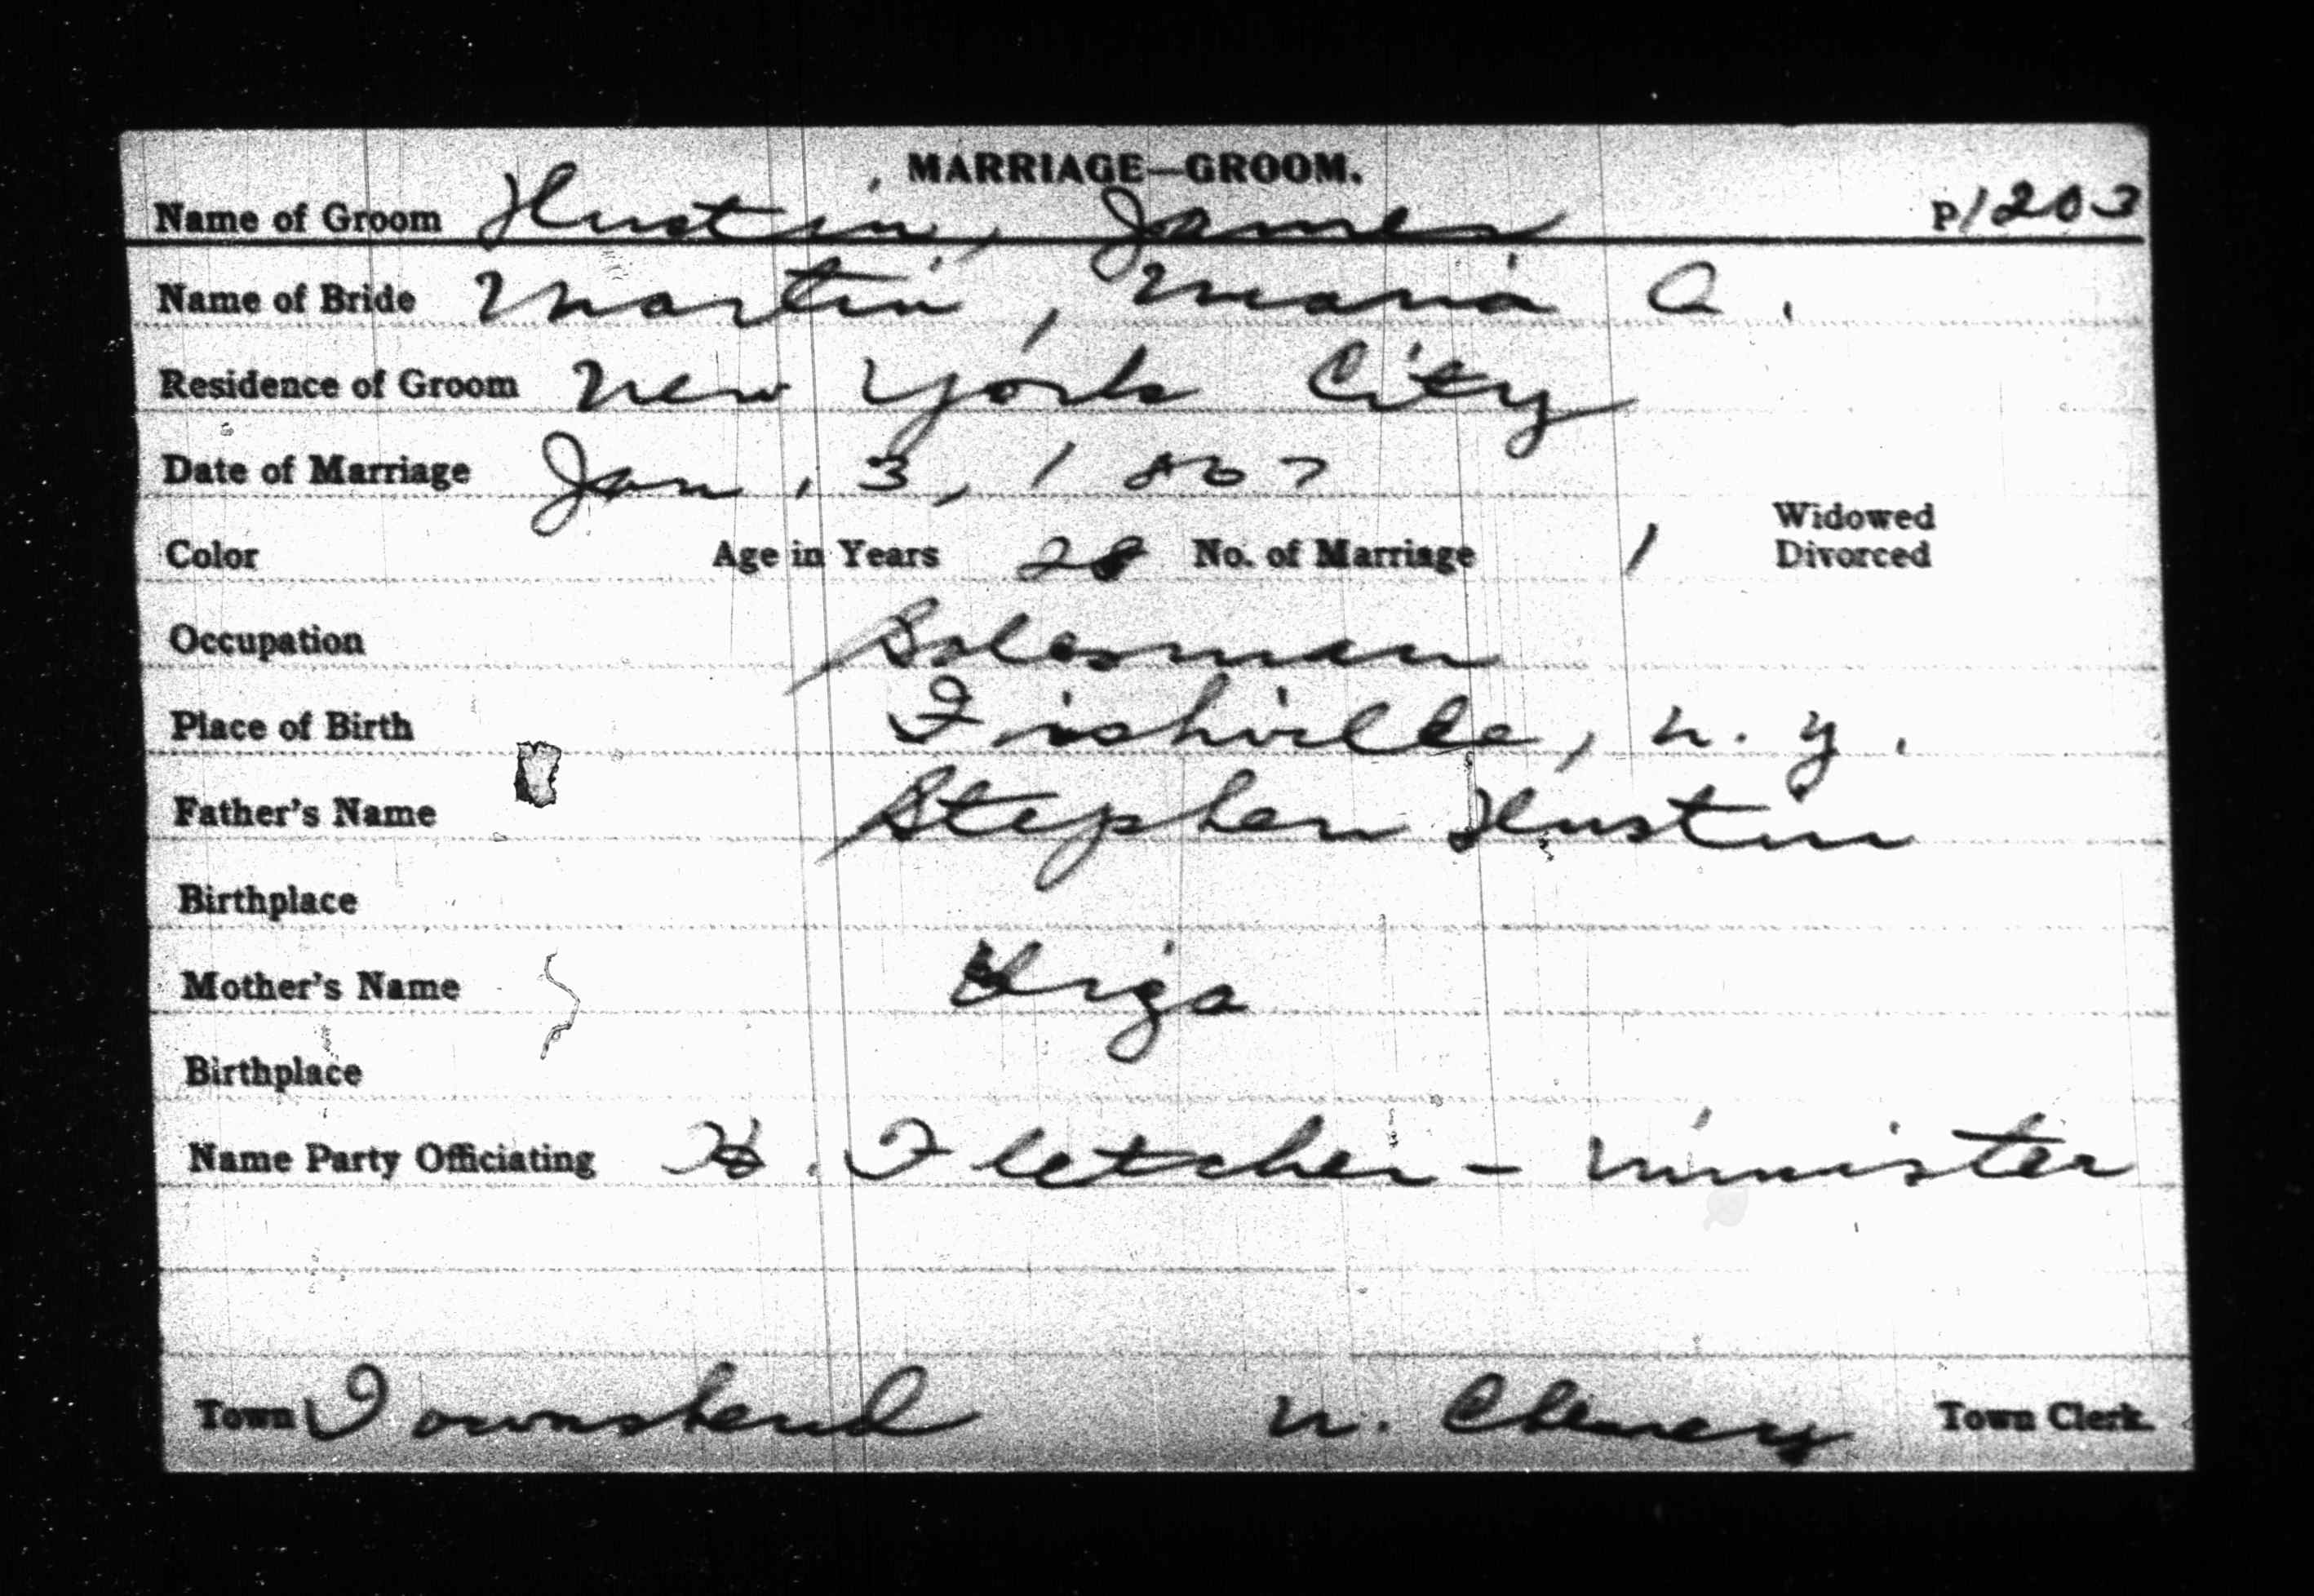 MARRIAGE—GROOM.
Name of Groom Hustin, James P1203
Name of Bride Martin, Maria A.
Residence of Groom New York City
Date of Marriage Jan. 3, 1867
Color Age in Years 28 No. of Marriage 1 Widowed Divorced
Occupation Salesman
Place of Birth Fishville, N. Y.
Father's Name Stephen Hustin
Birthplace
Mother's Name
Birthplace
Name Party Officiating H. Fletcher - minister
Town Townshend N. Cheney Town Clerk.